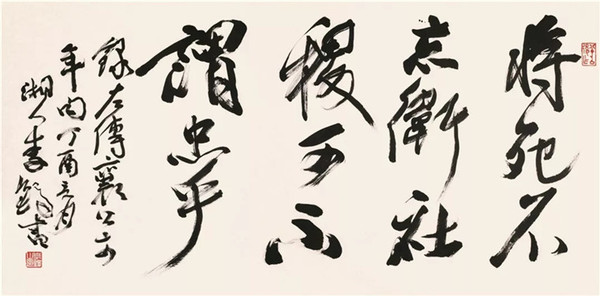 將死不
忘衛社
稷可不
謂忠乎
錄左傳襄公
年句丁酉月
湘人李鐸書